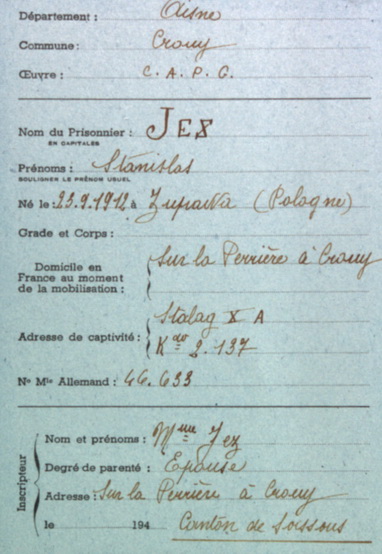 Département : Aisne
Commune : Crouy
Œuvre : C. A. P. G.
Nom du Prisonnier : JEZ
EN CAPITALES
Prénoms : Stanislas
SOULIGNER LE PRÉNOM USUEL
Né le : 23.9.1912 à (Pologne)
Grade et Corps :
Domicile en
France au moment
de la mobilisation :
Sur la Perrière à Crouy
Adresse de captivité :
Stalag X A
Kdo 2.137
No Mle Allemand : 46.633
Inscripteur
Nom et prénoms : Mme Jez
Degré de parenté : Epouse
Adresse : Sur la Perrière à Crouy
le 194 Canton de Soissons